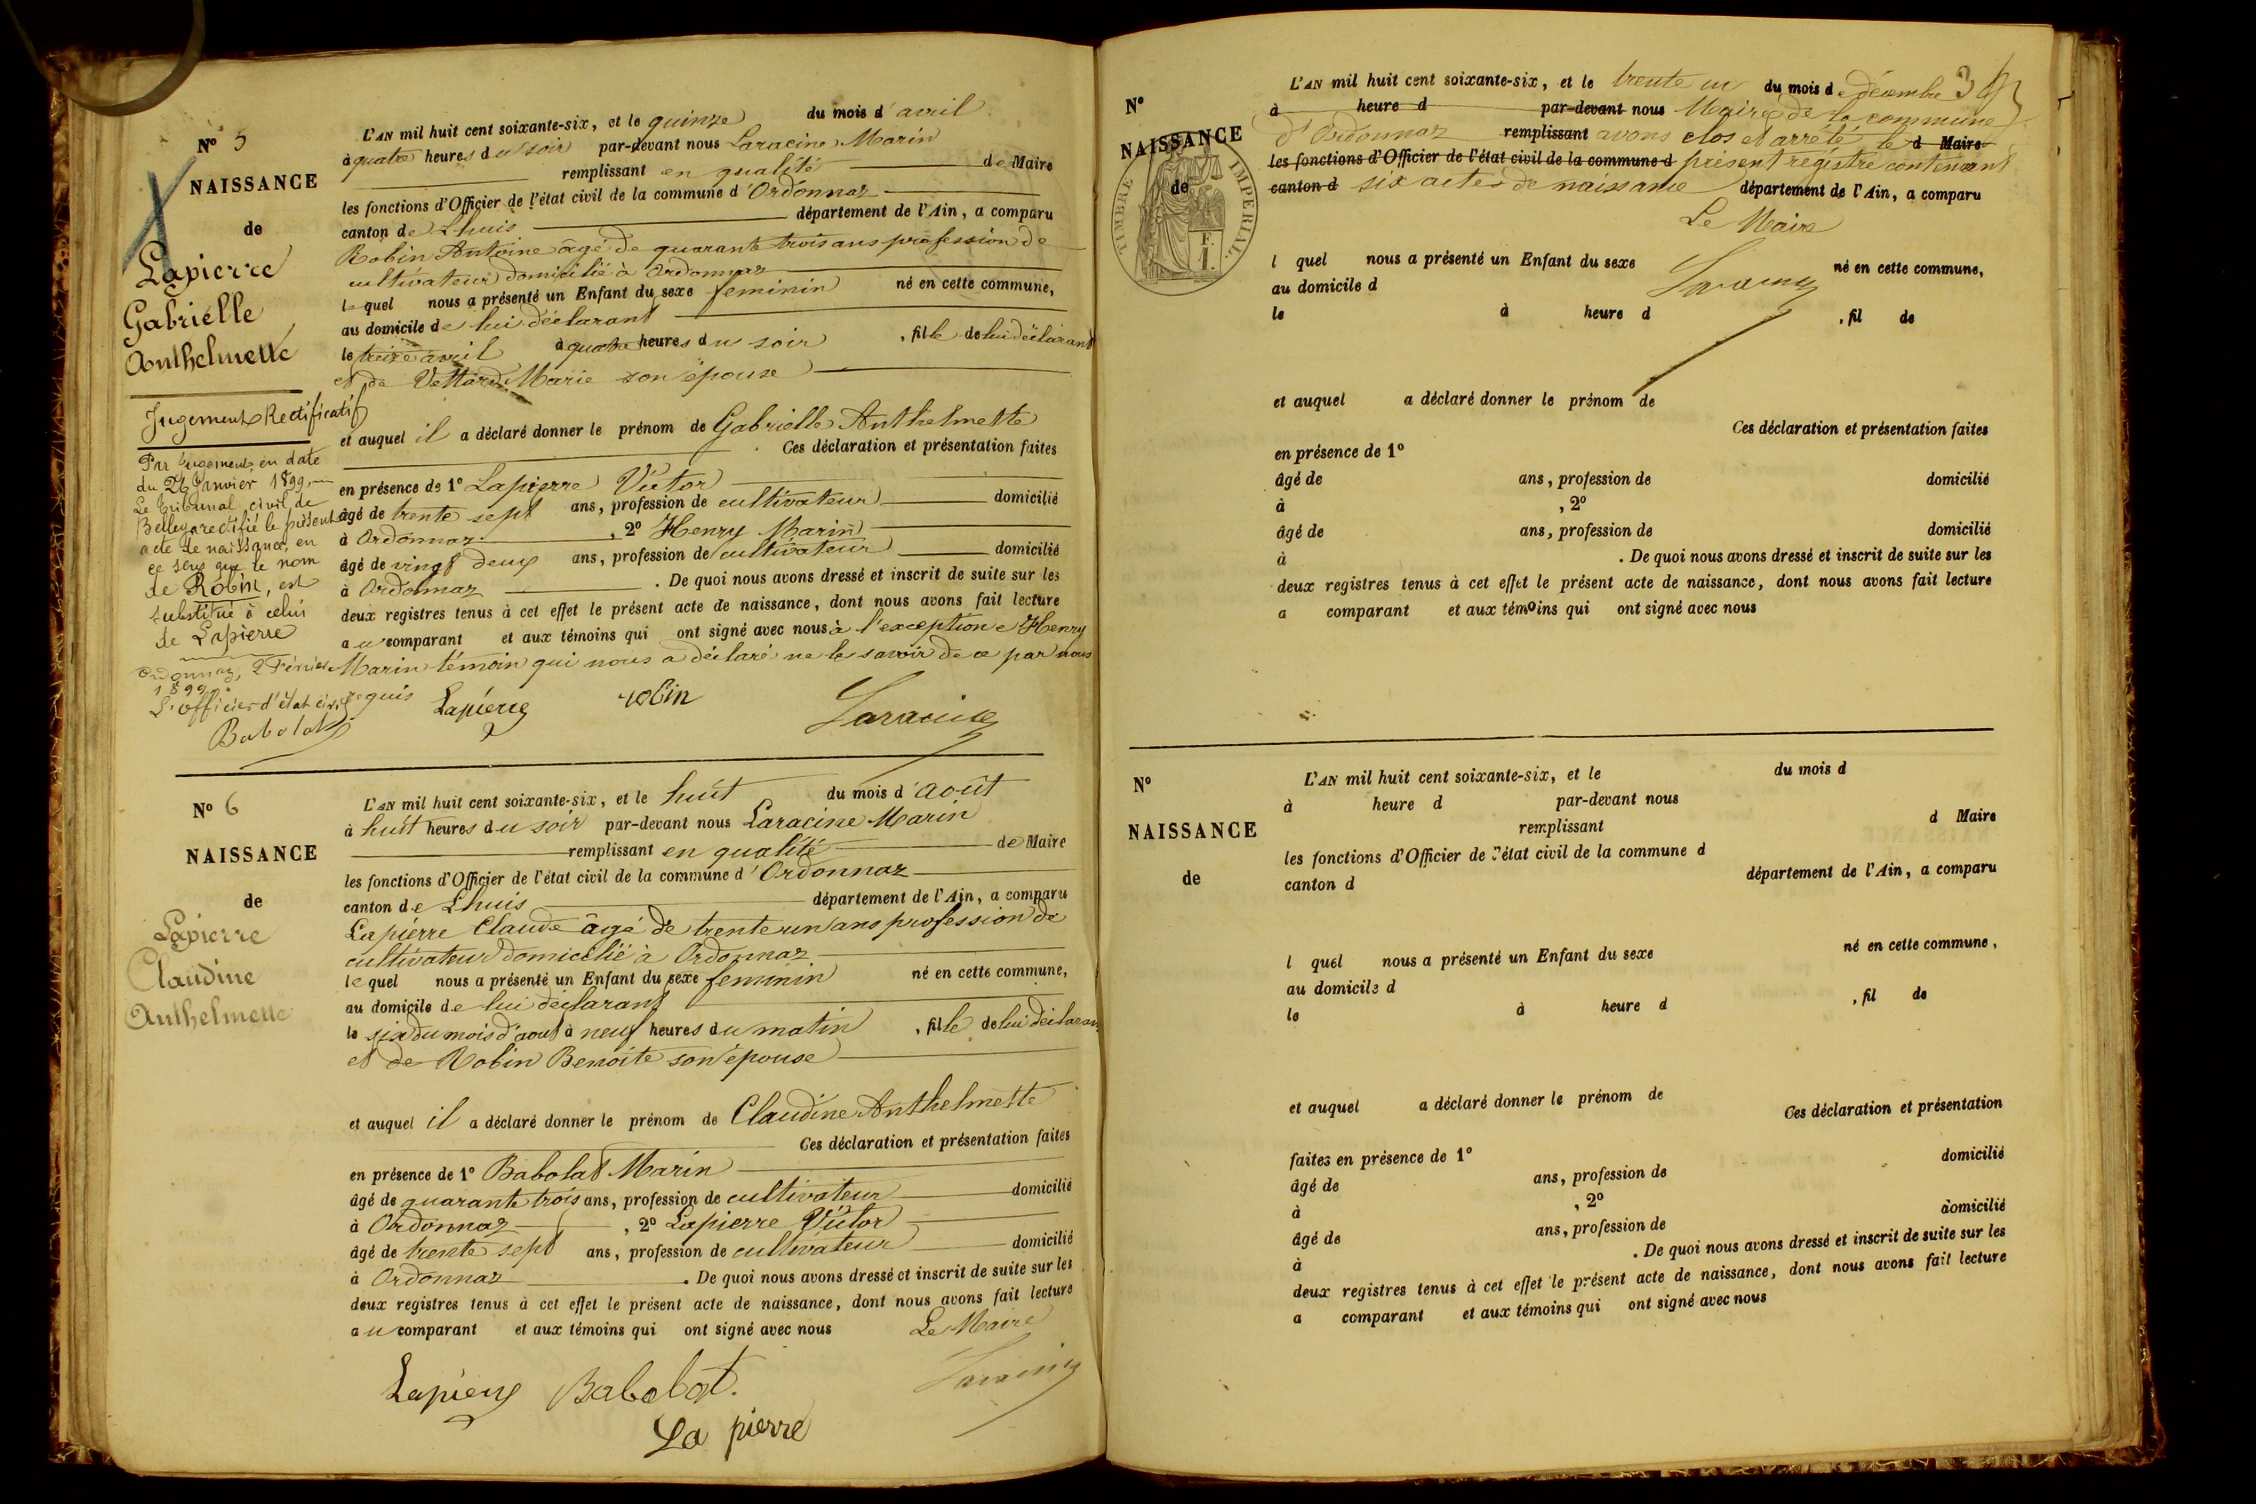 N° 5
NAISSANCE
de
Lapierre
Gabriélle
Anthelmette
Jugement Rectificatif
Par jugement, en date
du 26 Janvier 1899,
Le Tribunal civil de
Belley a rectifié le présent
acte de naissance, en
ce sens que le nom
de Robin, est
substitué à celui
de Lapierre
Ordonnaz, 2 Février
1899.
L'officier d'état civil
Babolat
L'AN mil huit cent soixante-six, et le quinze du mois d'avril
à quatre heures du soir par-devant nous Laracine Marin
remplissant en qualité de Maire
les fonctions d'Officier de l'état civil de la commune d'Ordonnaz
canton de Lhuis département de l'Ain, a comparu
Robin Antoine âgé de quarante trois ans profession de
cultivateur domicilié à Ordonnaz
lequel nous a présenté un Enfant du sexe feminin né en cette commune,
au domicile de lui déclarant
le treize avril à quatre heures du soir, fille de lui déclarant
et de Vettard Marie son épouse
et auquel il a déclaré donner le prénom de Gabrielle Anthelmette
Ces déclaration et présentation faites
en présence de 1° Lapierre Victor
âgé de trente sept ans, profession de cultivateur domicilié
à Ordonnaz, 2° Henry Marin
âgé de vingt deux ans, profession de cultivateur domicilié
à Ordonnaz. De quoi nous avons dressé et inscrit de suite sur les
deux registres tenus à cet effet le présent acte de naissance, dont nous avons fait lecture
au comparant et aux témoins qui ont signé avec nous à l'exception e Henry
Marin témoin qui nous a déclaré ne le savoir de ce par nous
requis Lapierre robin Laracine
N° 6
NAISSANCE
de
Lapierre
Claudine
Anthelmette
L'AN mil huit cent soixante-six, et le huit du mois d'août
à huit heures du soir par-devant nous Laracine Marin
remplissant en qualité de Maire
les fonctions d'Officier de l'état civil de la commune d'Ordonnaz
canton de Lhuis département de l'Ain, a comparu
Lapierre Claude âgé de trente un ans profession de
cultivateur domicilié à Ordonnaz
lequel nous a présenté un Enfant du sexe feminin né en cette commune,
au domicile de lui déclarant
le six du mois d'aout à neuf heures du matin, fille de lui déclarant
et de Robin Benoite son épouse
et auquel il a déclaré donner le prénom de Claudine Anthelmette
Ces déclaration et présentation faites
en présence de 1° Babolat Marin
âgé de quarante trois ans, profession de cultivateur domicilié
à Ordonnaz, 2° Lapierre Victor
âgé de trente sept ans, profession de cultivateur domicilié
à Ordonnaz. De quoi nous avons dressé et inscrit de suite sur les
deux registres tenus à cet effet le présent acte de naissance, dont nous avons fait lecture
au comparant et aux témoins qui ont signé avec nous Le Maire
Lapierre Babolat. Laracine
La pierre
N°
NAISSANCE
de
TIMBRE IMPERIAL.
L'AN mil huit cent soixante-six, et le trente un du mois de décembre 3
à heure d par-devant nous Maire de la commune
d'Ordonnaz remplissant avons clos et arrêté le d Maire
les fonctions d'Officier de l'état civil de la commune d présent registre contenant
canton d six actes de naissance département de l'Ain, a comparu
Le Maire
l quel nous a présenté un Enfant du sexe Laracine né en cette commune,
au domicile d
le à heure d , fil de
et auquel a déclaré donner le prénom de
Ces déclaration et présentation faites
en présence de 1°
âgé de ans, profession de domicilié
à , 2°
âgé de ans, profession de domicilié
à . De quoi nous avons dressé et inscrit de suite sur les
deux registres tenus à cet effet le présent acte de naissance, dont nous avons fait lecture
a comparant et aux témoins qui ont signé avec nous
N°
NAISSANCE
de
L'AN mil huit cent soixante-six, et le du mois d
à heure d par-devant nous
remplissant d Maire
les fonctions d'Officier de l'état civil de la commune d
canton d département de l'Ain, a comparu
l quel nous a présenté un Enfant du sexe né en cette commune,
au domicile d
le à heure d , fil de
et auquel a déclaré donner le prénom de
Ces déclaration et présentation
faites en présence de 1°
âgé de ans, profession de domicilié
à , 2°
âgé de ans, profession de domicilié
à . De quoi nous avons dressé et inscrit de suite sur les
deux registres tenus à cet effet le présent acte de naissance, dont nous avons fait lecture
a comparant et aux témoins qui ont signé avec nous